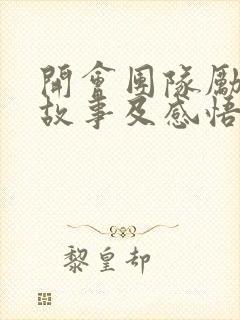 開會團隊勵
故事及感悟
黎皇却